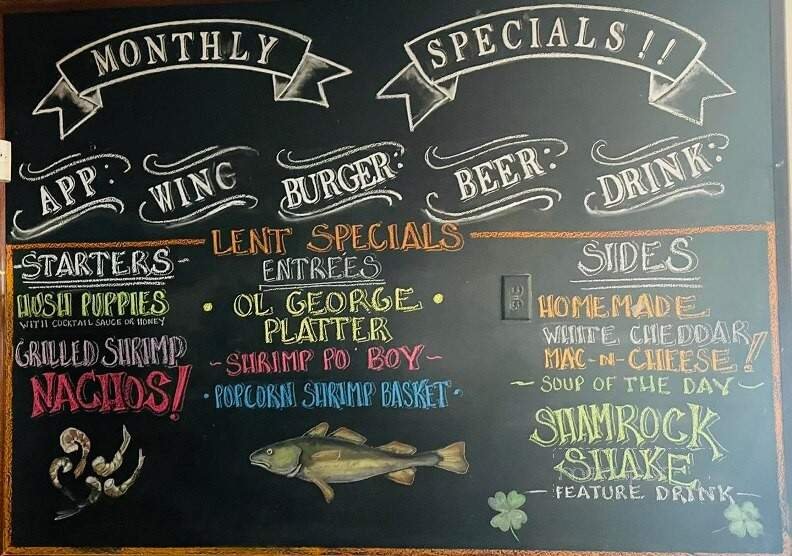 MONTHLY SPECIALS!!
APP: WING BURGER: BEER: DRINK:
LENT SPECIALS
-STARTERS-
HUSH PUPPIES
WITH COCKTAIL SAUCE OR HONEY
GRILLED SHRIMP
NACHOS!
ENTREES
• OL GEORGE •
PLATTER
~SHRIMP PO BOY~
• POPCORN SHRIMP BASKET •
SIDES
HOMEMADE
WHITE CHEDDAR
MAC-N-CHEESE!
~SOUP OF THE DAY~
SHAMROCK
SHAKE
- FEATURE DRINK -